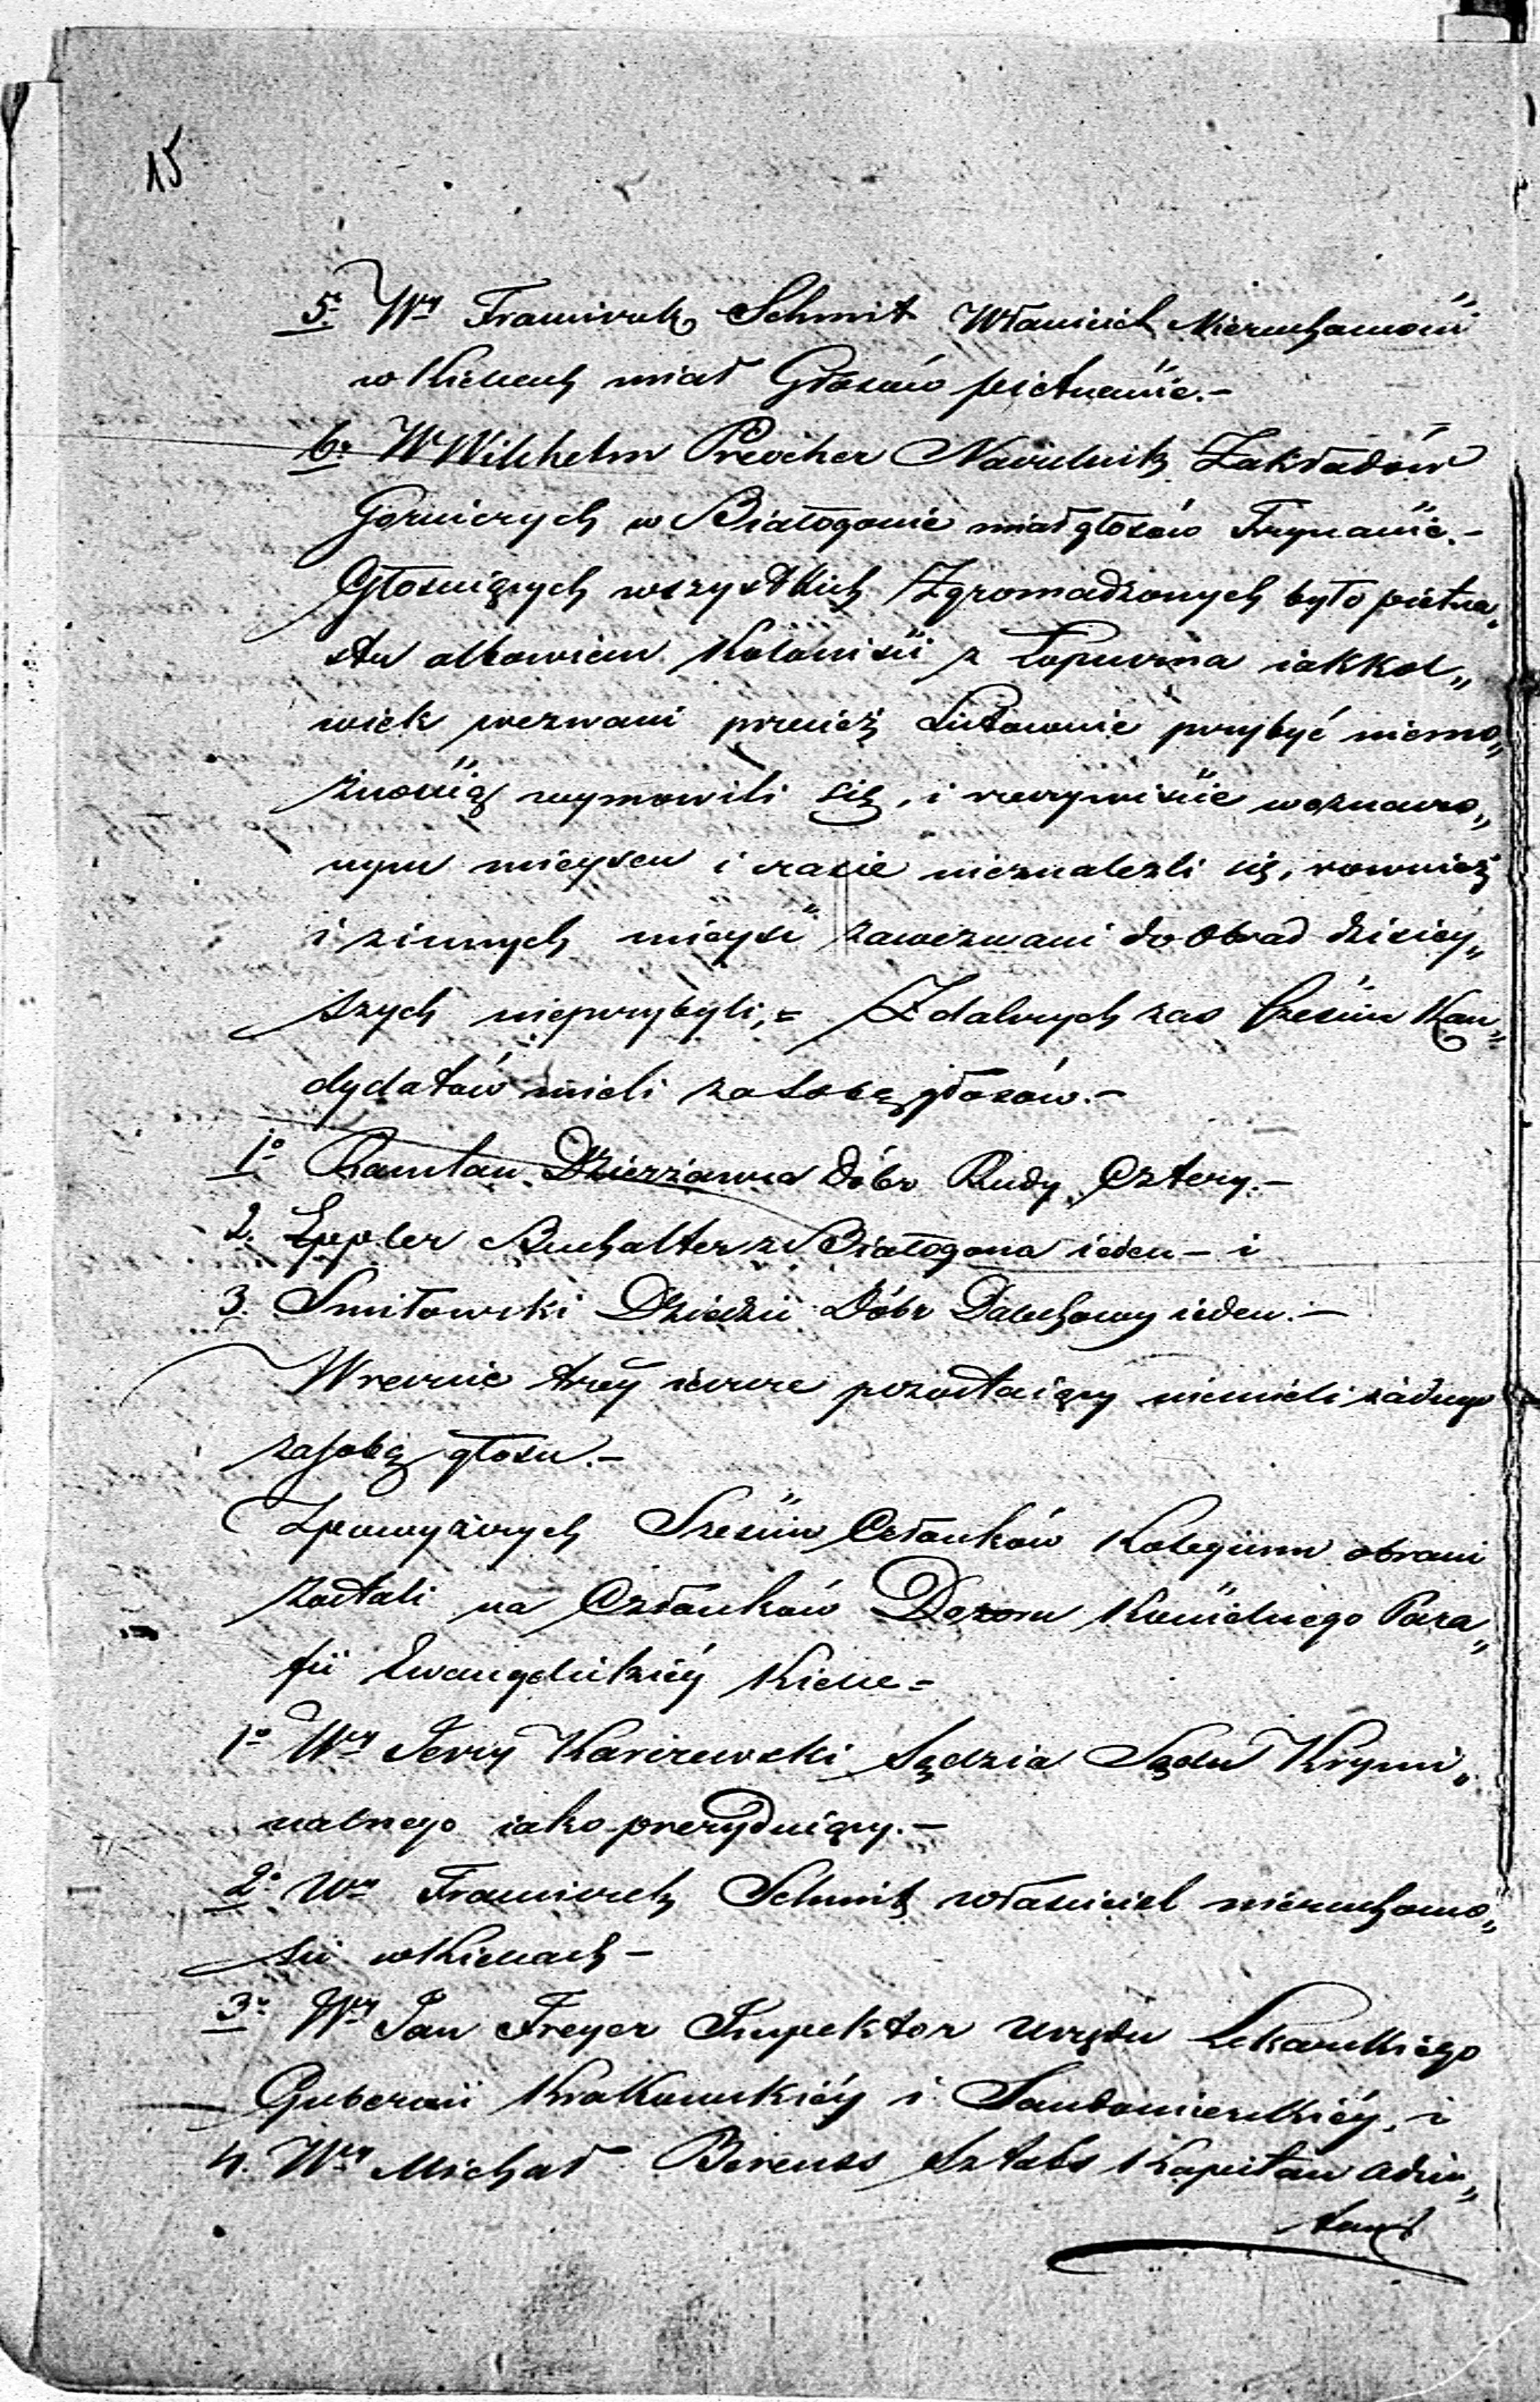 15
5. Wy Franciszek Schmit Właściciel Nieruchomości
w Kielcach miał Głosów pietnaście.-
6. W Wilchelm Preocher Naczelnik Zakładów
Gorniczych w Białogonie miał głosów Trzynaście.-
Głosuiących wszystkich Zgromadzonych było pietna„
stu albowiem Koloniści z Łopuszna iakkol„
wiek wezwani przecież Listownie przybyć niemo„
żnością wymowili się, i rzeczywiście w oznaczo„
nym mieyscu i czasie nieznalezli się, rownież
i z innych mieysc zawezwani do Obrad dzisiey„
szych nieprzybyli,= Z dalszych zas sześciu Kan„
dydatów mieli za sobą głosów.-
1o Ramlau Dzierżawca Dóbr Rudy Cztery.-
2. Eppler Buchalter z Białogona ieden - i
3. Smitowski Dziedzic Dóbr Daleszowy ieden.-
Wreszcie trzey ieszcze pozostaiący niemieli żadnego
za sobą głosu.-
Z powyższych Sześciu Członków Kolegium obrani
zostali na Członków Dozoru Kościelnego Para„
fii Ewangelickiéy Kielce=
1o Wy Jerzy Karczewski Sędzia Sądu Krymi„
nalnego iako prezyduiący.-
2o Wy Franciszek Schmit właściciel nieruchomo„
ści w Kielcach -
3o Wy Jan Freyer Inspektor Urzędu Lekarskiego
Gubernii Krakowskiéy i Sandomierskiéy, i
4. Wy Michał Berens Sztabs Kapitan Adiu„
tant